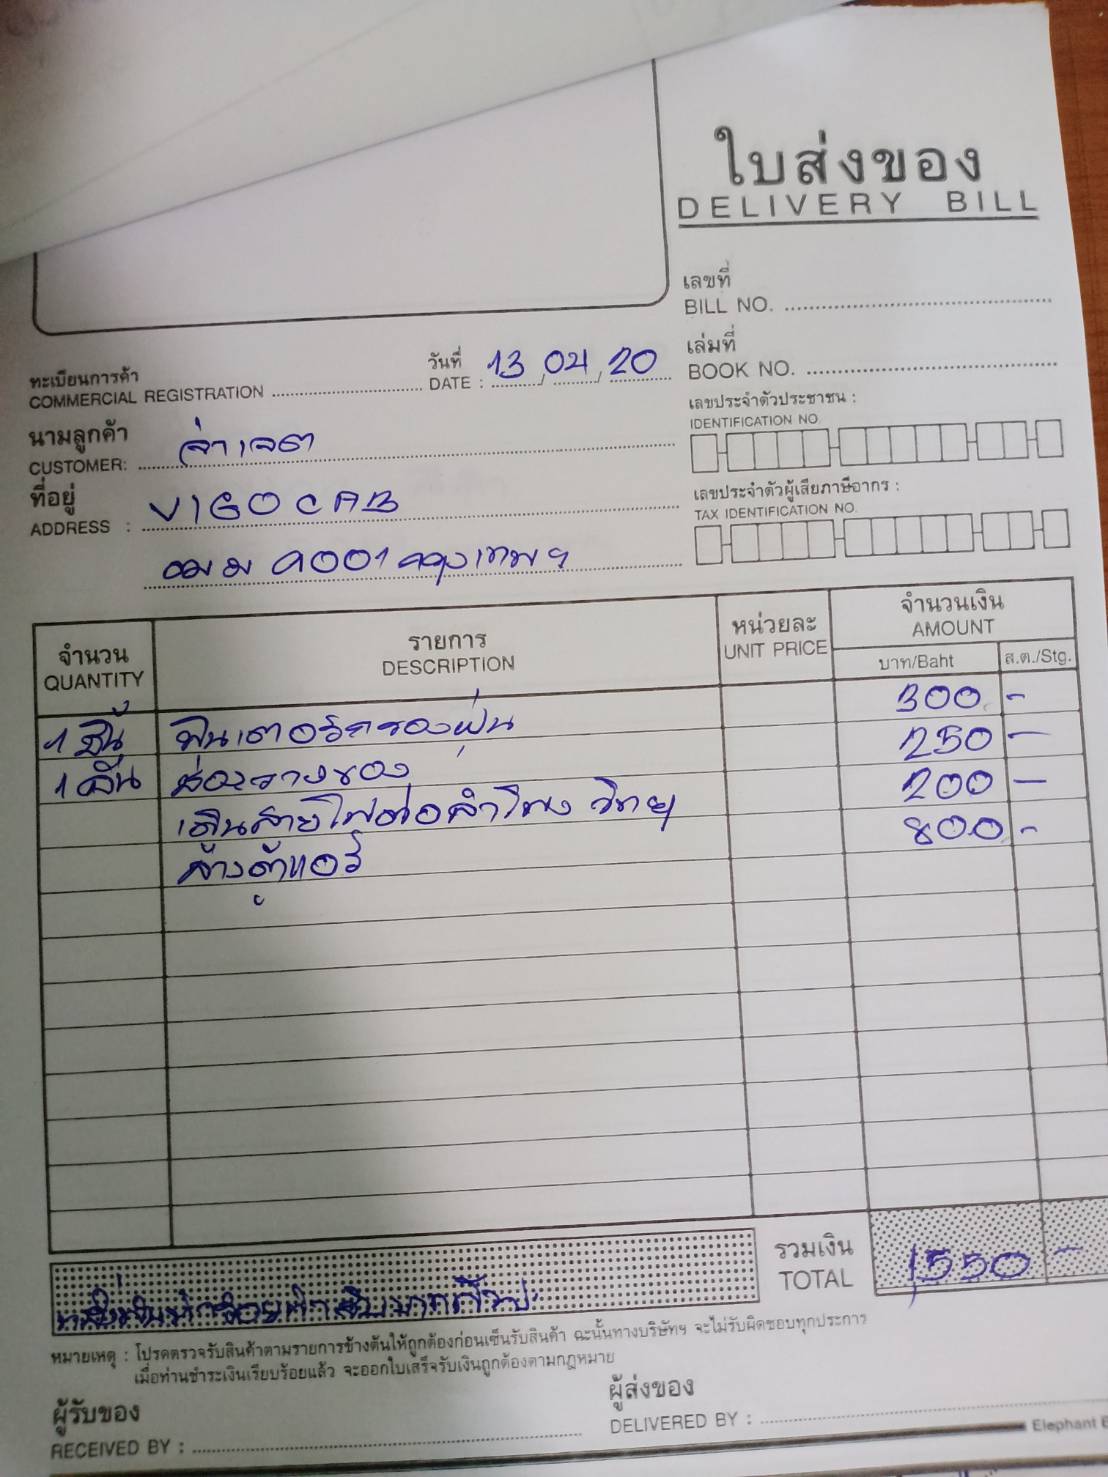 ใบส่งของ
DELIVERY BILL
เลขที่
BILL NO.
เล่มที่
BOOK NO.
ทะเบียนการค้า
COMMERCIAL REGISTRATION
วันที่
DATE : 13/04/20
นามลูกค้า
CUSTOMER: จ่าเจต
ที่อยู่
ADDRESS : VIGO CAB
9001 กรุงเทพฯ
เลขประจำตัวประชาชน :
IDENTIFICATION NO.
เลขประจำตัวผู้เสียภาษีอากร :
TAX IDENTIFICATION NO.
จำนวน
QUANTITY
รายการ
DESCRIPTION
หน่วยละ
UNIT PRICE
จำนวนเงิน
AMOUNT
บาท/Baht ส.ต./Stg.
1 ชิ้น ฟินเตอร์กรองฝุ่น 300 -
1 250 -
เดินสายไฟต่อลำโพง วิทยุ 200 -
ล้างตู้แอร์ 800 -
รวมเงิน
TOTAL 1,550 -
หนึ่งพันห้าร้อยห้าสิบบาทถ้วน
หมายเหตุ : โปรดตรวจรับสินค้าตามรายการข้างต้นให้ถูกต้องก่อนเซ็นรับสินค้า ฉะนั้นทางบริษัทฯ จะไม่รับผิดชอบทุกประการ
เมื่อท่านชำระเงินเรียบร้อยแล้ว จะออกใบเสร็จรับเงินถูกต้องตามกฎหมาย
ผู้รับของ
RECEIVED BY :
ผู้ส่งของ
DELIVERED BY :
Elephant